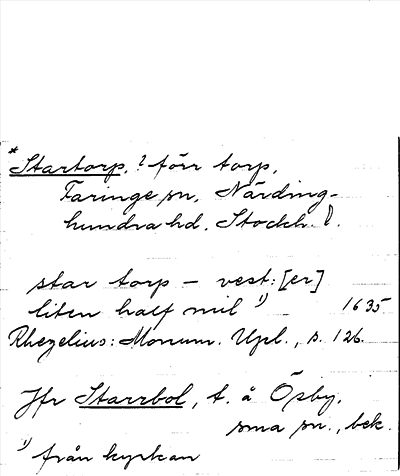 * Startorp, ? förr torp,
Faringe sn, Närding-
hundra hd, Stockh. l.
star torp – vest:[er]
liten half mil ¹) 1635
Rhezelius: Monum. Upl., s. 126.
Jfr Starrbol, t. å Ösby,
sma sn., bek.
¹) från kyrkan